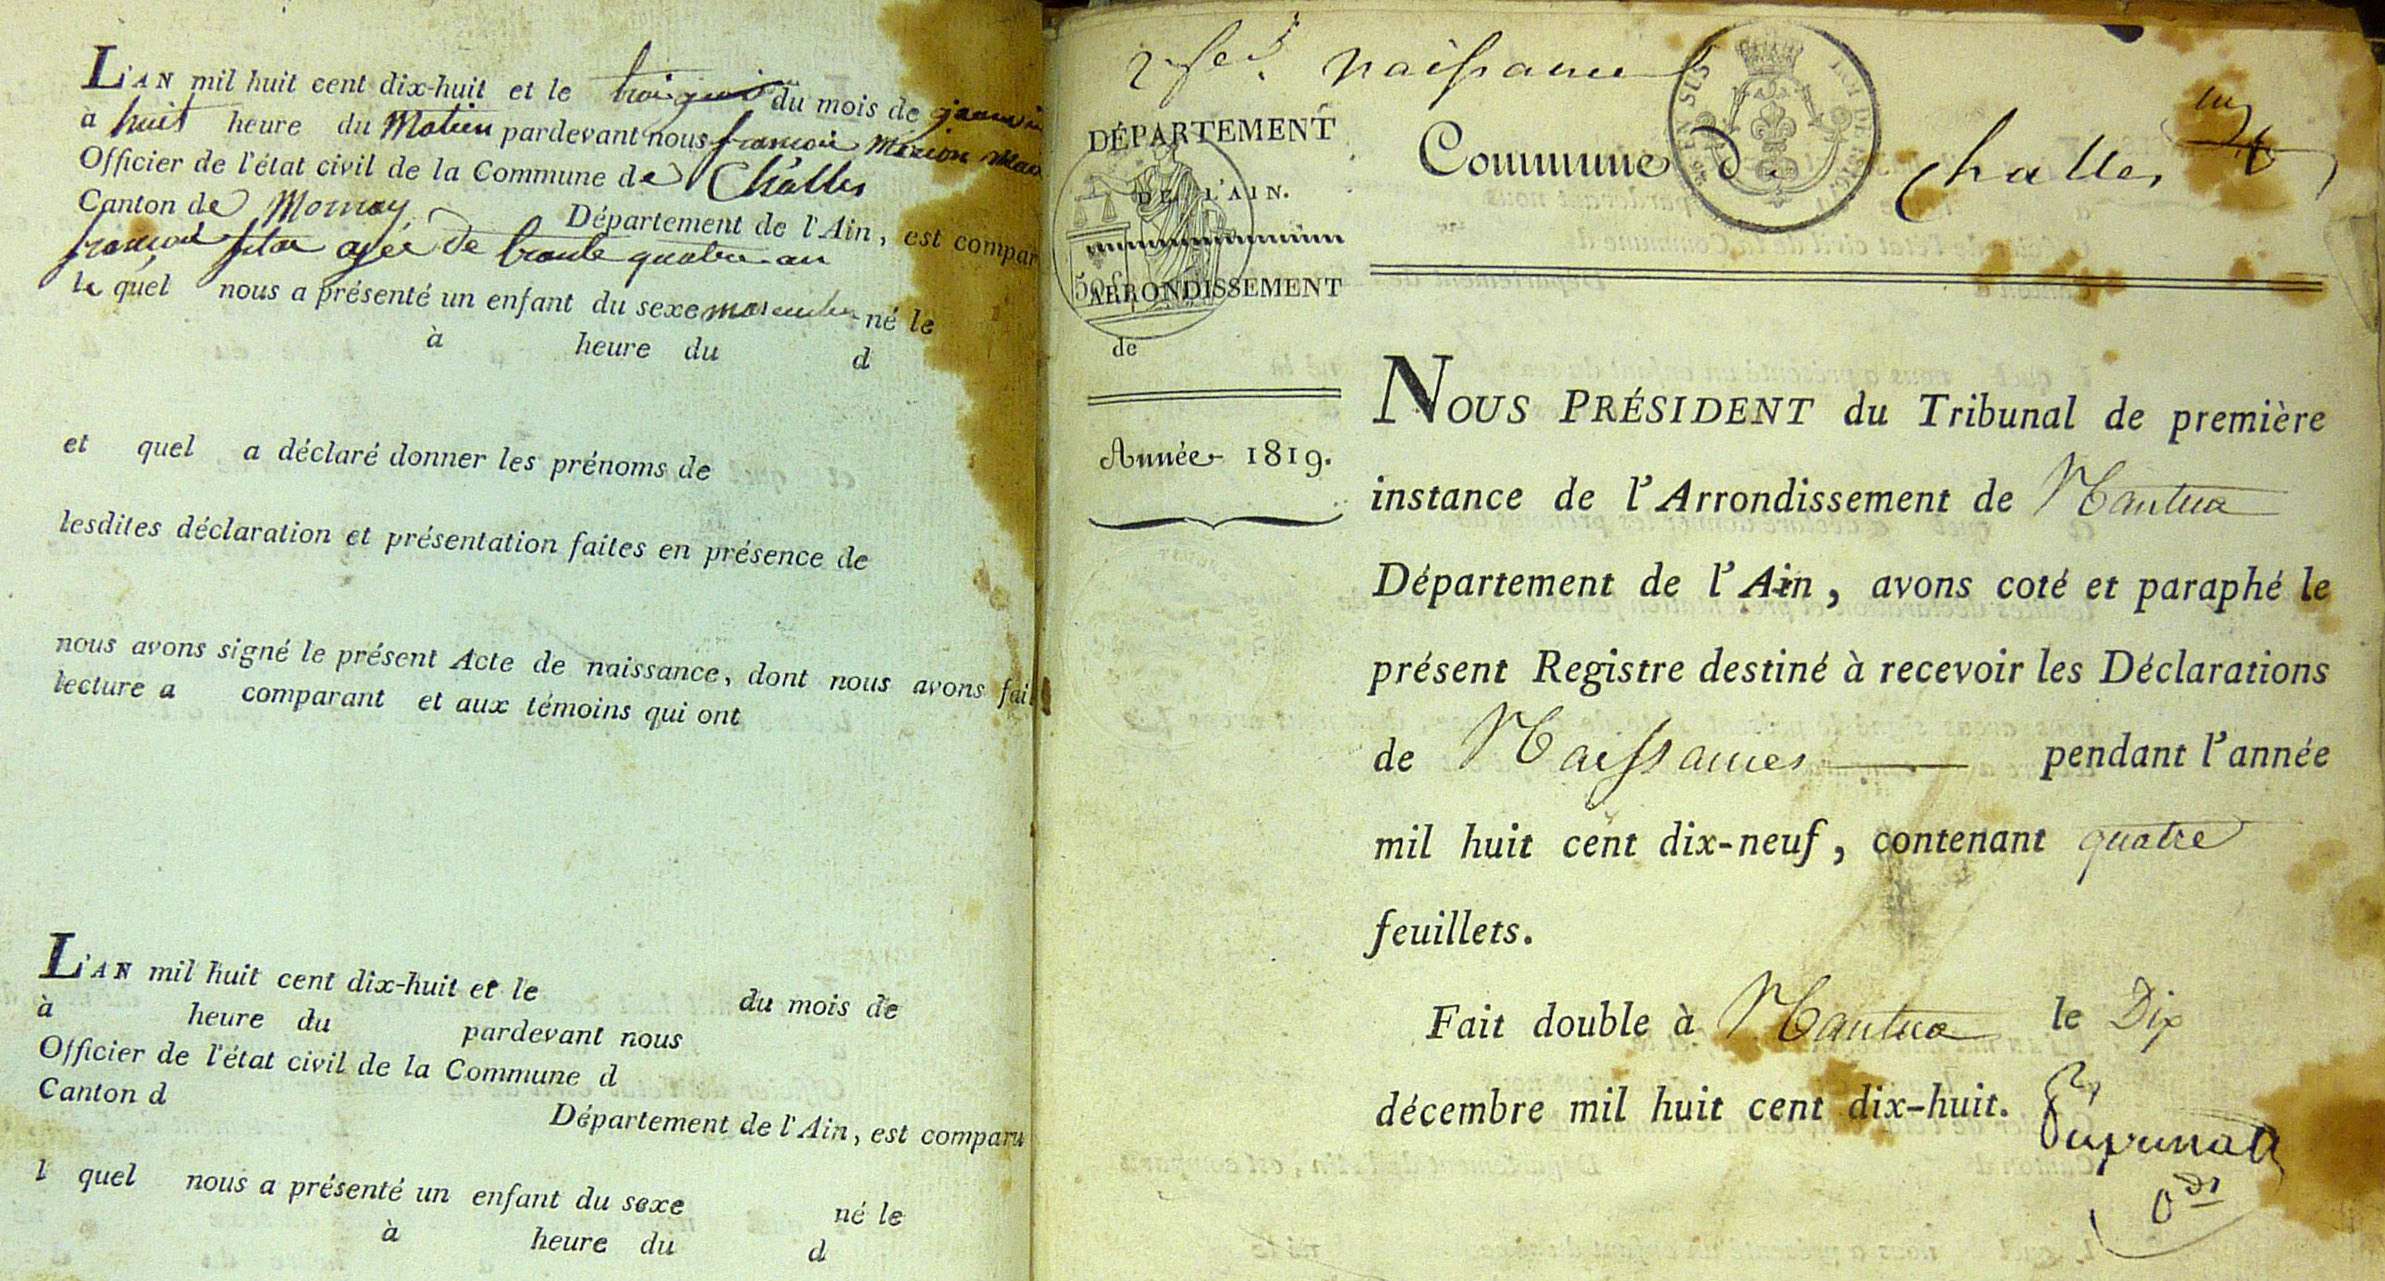 L'AN mil huit cent dix-huit et le du mois de
a huit heure du Matin pardevant nous francois Marion
Officier de l'état civil de la Commune de Challes
Canton de Mornay Département de l'Ain, est compar
francois agée de trante quatre an
le quel nous a présenté un enfant du sexe masculin né le
à heure du d
et quel a déclaré donner les prénoms de
lesdites déclaration et présentation faites en présence de
nous avons signé le présent Acte de naissance, dont nous avons fai
lecture a comparant et aux témoins qui ont
L'AN mil huit cent dix-huit et le du mois de
à heure du pardevant nous
Officier de l'état civil de la Commune d
Canton d Département de l'Ain, est comparu
l quel nous a présenté un enfant du sexe né le
à heure du d
naissance
DÉPARTEMENT
DE L'AIN.
50
ARRONDISSEMENT
de
Année 1819.
EN SUS
Commune de Challes
NOUS PRÉSIDENT du Tribunal de première
instance de l'Arrondissement de Nantua
Département de l'Ain, avons coté et paraphé le
présent Registre destiné à recevoir les Déclarations
de Naissances pendant l'année
mil huit cent dix-neuf, contenant quatre
feuillets.
Fait double à Nantua le Dix
décembre mil huit cent dix-huit.